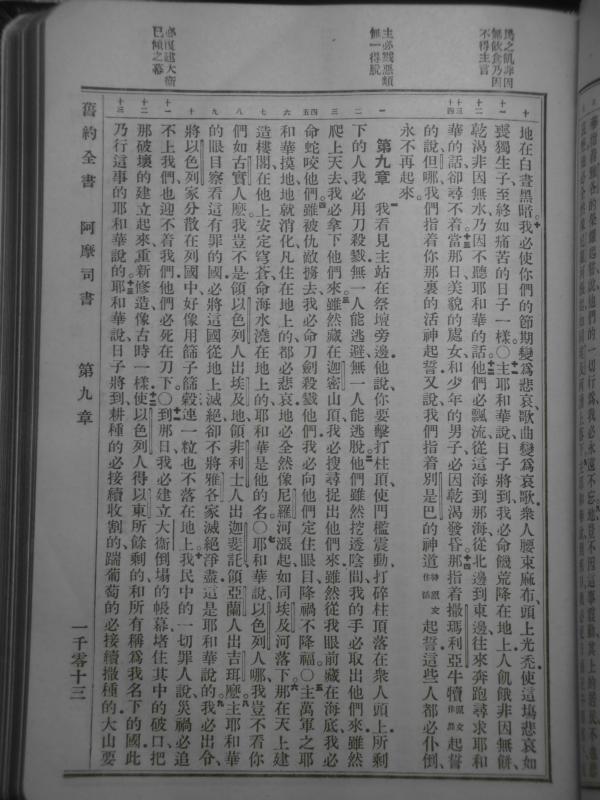 爲之飢非因
無飲食乃因
不得主言
主必戮惡類
無一得脫
必復建大衛
已傾之幕
地在白晝黑暗我必使你們的節期變爲悲哀歌曲變爲哀歌衆人腰束麻布頭上光禿使這場悲哀如
喪獨生子至終如痛苦的日子一樣〇主耶和華說日子將到我必命饑荒降在地上人飢餓非因無餅
乾渴非因無水乃因不聽耶和華的話他們必飄流從這海到那海從北邊到東邊往來奔跑尋求耶和
華的話卻尋不着當那日美貌的處女和少年的男子必因乾渴發昏那指着撒瑪利亞牛犢起誓
的說但哪我們指着你那裏的活神起誓又說我們指着別是巴的神道起誓這些人都必仆倒
永不再起來
第九章 我看見主站在祭壇旁邊他說你要擊打柱頂使門檻震動打碎柱頂落在衆人頭上所剩
下的人我必用刀殺戮無一人能逃避無一人能逃脫他們雖然挖透陰間我的手必取出他們來雖然
爬上天去我必拿下他們來雖然藏在迦密山頂我必搜尋捉出他們來雖然從我眼前藏在海底我必
命蛇咬他們雖被仇敵擄去我必命刀劍殺戮他們我必向他們定住眼目降禍不降福〇主萬軍之耶
和華摸地地就消化凡住在地上的都必悲哀地必全然像尼羅河漲起如同埃及河落下那在天上建
造樓閣在他上安定穹蒼命海水澆在地上的耶和華是他的名〇耶和華說以色列人哪我豈不看你
們如古實人麽我豈不是領以色列人出埃及地領非利士人出迦斐託領亞蘭人出吉珥麽主耶和華
的眼目察看這有罪的國必將這國從地上滅絕卻不將雅各家滅絕淨盡這是耶和華說的我必出令
將以色列家分散在列國中好像用篩子篩穀連一粒也不落在地上我民中的一切罪人說災禍必追
不上我們也迎不着我們他們必死在刀下〇到那日我必建立大衛倒塌的帳幕堵住其中的破口把
那破壞的建立起來重新修造像古時一樣使以色列人得以東所餘剩的和所有稱爲我名下的國此
乃行這事的耶和華說的耶和華說日子將到耕種的必接續收割的踹葡萄的必接續撒種的大山要
舊約全書 阿摩司書 第九章 一千零十三